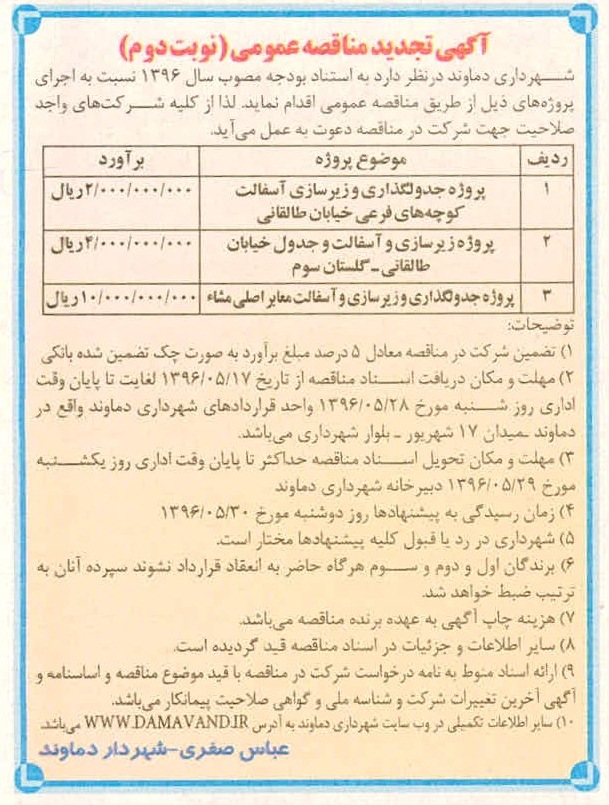 آگهی تجدید مناقصه عمومی (نوبت دوم)
شهرداری دماوند درنظر دارد به استناد بودجه مصوب سال ۱۳۹۶ نسبت به اجرای
پروژه‌های ذیل از طریق مناقصه عمومی اقدام نماید. لذا از کلیه شرکت‌های واجد
صلاحیت جهت شرکت در مناقصه دعوت به عمل می‌آید.
ردیف موضوع پروژه برآورد
۱ پروژه جدولگذاری و زیرسازی آسفالت ۲/۰۰۰/۰۰۰/۰۰۰ ریال
کوچه‌های فرعی خیابان طالقانی
۲ پروژه زیرسازی و آسفالت و جدول خیابان ۴/۰۰۰/۰۰۰/۰۰۰ ریال
طالقانی - گلستان سوم
۳ پروژه جدولگذاری و زیرسازی و آسفالت معابر اصلی مشاء ۱۰/۰۰۰/۰۰۰/۰۰۰ ریال
توضیحات:
۱) تضمین شرکت در مناقصه معادل ۵ درصد مبلغ برآورد به صورت چک تضمین شده بانکی
۲) مهلت و مکان دریافت اسناد مناقصه از تاریخ ۱۳۹۶/۰۵/۱۷ لغایت تا پایان وقت
اداری روز شنبه مورخ ۱۳۹۶/۰۵/۲۸ واحد قراردادهای شهرداری دماوند واقع در
دماوند - میدان ۱۷ شهریور - بلوار شهرداری می‌باشد.
۳) مهلت و مکان تحویل اسناد مناقصه حداکثر تا پایان وقت اداری روز یکشنبه
مورخ ۱۳۹۶/۰۵/۲۹ دبیرخانه شهرداری دماوند
۴) زمان رسیدگی به پیشنهادها روز دوشنبه مورخ ۱۳۹۶/۰۵/۳۰
۵) شهرداری در رد یا قبول کلیه پیشنهادها مختار است.
۶) برندگان اول و دوم و سوم هرگاه حاضر به انعقاد قرارداد نشوند سپرده آنان به
ترتیب ضبط خواهد شد.
۷) هزینه چاپ آگهی به عهده برنده مناقصه می‌باشد.
۸) سایر اطلاعات و جزئیات در اسناد مناقصه قید گردیده است.
۹) ارائه اسناد منوط به نامه درخواست شرکت در مناقصه با قید موضوع مناقصه و اساسنامه و
آگهی آخرین تغییرات شرکت و شناسه ملی و گواهی صلاحیت پیمانکار می‌باشد.
۱۰) سایر اطلاعات تکمیلی در وب سایت شهرداری دماوند به آدرس WWW.DAMAVAND.IR می‌باشد.
عباس صفری-شهردار دماوند